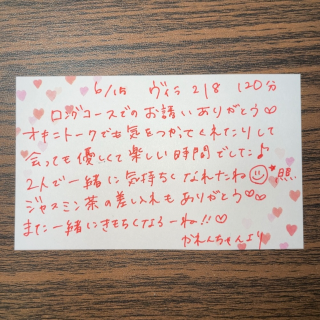 6/15 ヴィラ 218 120分
ロングコースでのお誘いありがとう♡
オキニトークでも気をつかってくれたりして
会っても優しくて楽しい時間でした♪
2人で一緒に気持ちくなれたね☺照
ジャスミン茶の差し入れもありがとう♡♡
また一緒にきもちくなろーね!!♡
かれんちゃんより